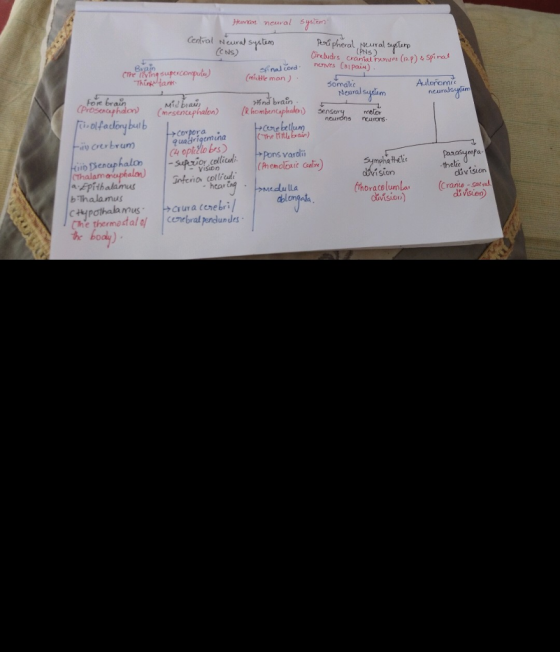 Human neural system
Central Neural system
(CNS)
Peripheral Neural system
(PNS)
(includes cranial nerves
& spinal
nerves
Brain
(The living supercomputer
Think tank
Spinal cord
(middle man)
Somatic
Neural system
Autonomic
neural system
Sensory
neurons
motor
neurons
Fore brain
(Prosencephalon)
Mid brain
(mesencephalon)
Hind brain
(Rhombencephalon)
i) olfactory bulb
ii) cerebrum
iii) Diencephalon
(Thalamencephalon)
a. Epithalamus
b. Thalamus
c. Hypothalamus.
(The thermostat of
the body).
→ corpora
quadrigemina
(4 optic lobes)
- Superior colliculi
- vision
Inferior colliculi
- hearing
→ crura cerebri/
cerebral peduncles.
→ Cerebellum
→ Pons varolii
→ medulla
oblongata.
Sympathetic
division
(Thoracolumbar
division)
Parasympa-
thetic
division
(Cranio-sacral
division)